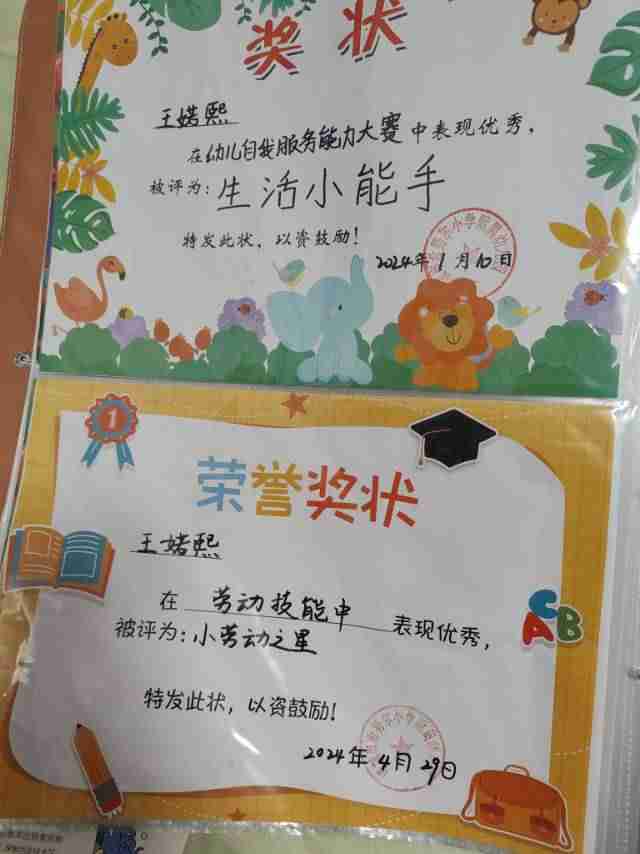 奖状
王婼熙
在幼儿自我服务能力大赛中表现优秀，
被评为：生活小能手
特发此状，以资鼓励！
2024年1月10日
1
荣誉奖状
王婼熙
在 劳动技能中 表现优秀，
被评为：小劳动之星
ABC
特发此状，以资鼓励！
2024年4月29日